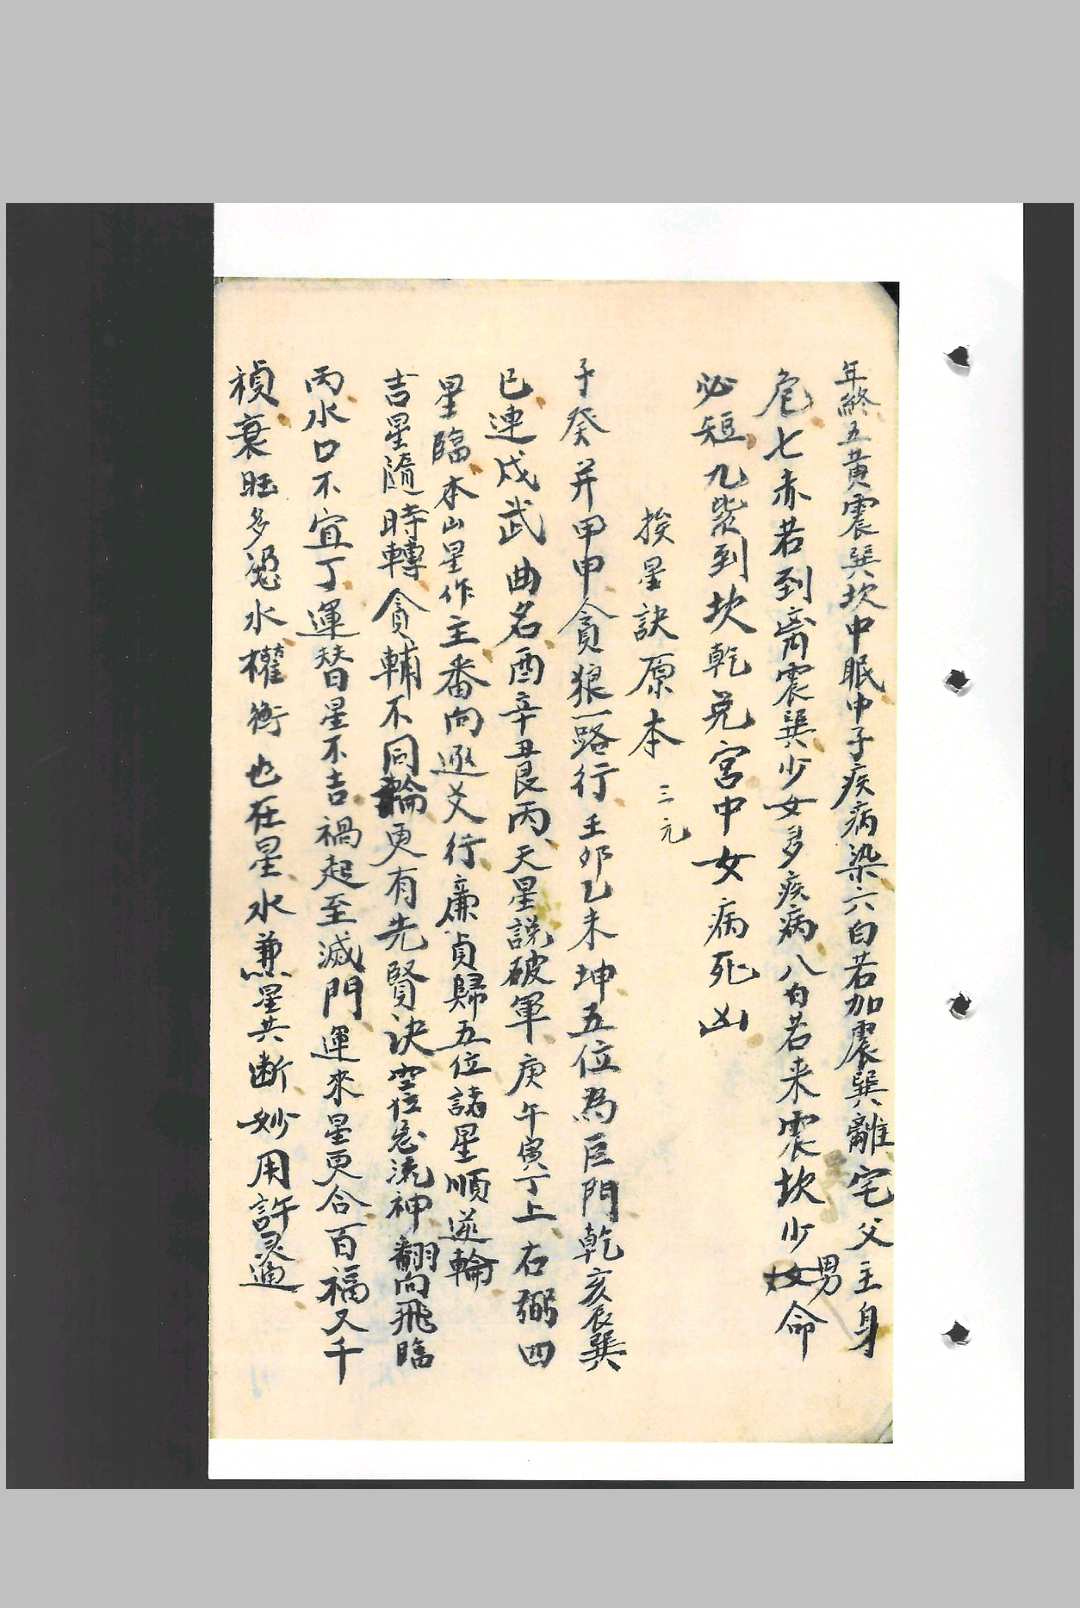 年終五黃震巽坎中眠中子疾病染六白若加震巽離宅父主身
危七赤若到离震巽少女多疾病八白若来震坎少男命
必短九紫到坎乾兑宮中女病死凶
挨星訣原本 三元
子癸并甲申貪狼一路行壬卯乙未坤五位為巨門乾亥辰巽
巳連戌武曲名酉辛丑艮丙天星說破軍庚午寅丁上右弼四
星臨本山星作主番向逐爻行廉貞歸五位諸星順逆輪
吉星隨時轉貪輔不同輪更有先賢訣空位忌流神翻向飛臨
丙水口不宜丁運替星不吉禍起至滅門運來星更合百福又千
禎衰旺多憑水權衡也在星水兼星共断妙用許灵通